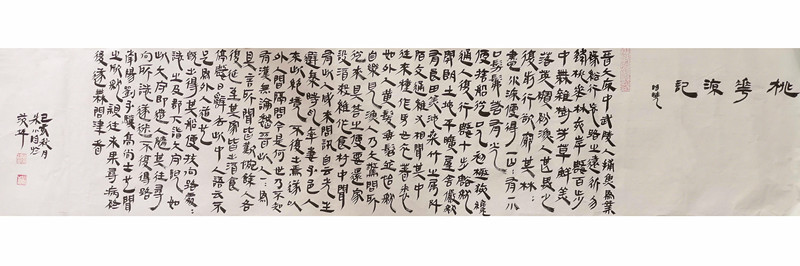 桃花源記
陶潛
晉太原中武陵人捕魚為業
緣谿行忘路之遠近忽
逢桃花林夾岸數百步
中無雜樹芳草鮮美
落英繽紛漁人甚異之
復前行欲窮其林林
盡水源便得一山山有小
口髣髴若有光
便捨船從口入初極狹纔
通人復行數十步豁然
開朗土地平曠屋舍儼然
有良田美池桑竹之屬阡
陌交通雞犬相聞其中
往來種作男女衣著悉
如外人黃髮垂髫並怡然
自樂見漁人乃大驚問所
從來具答之便要還家
設酒殺雞作食村中聞
有此人咸來問訊自云先世
避秦時亂率妻子邑人
來此絕境不復出焉遂與
外人間隔問今是何世乃不知
有漢無論魏晉此人一一為
具言所聞皆歎惋餘人各
復延至其家皆出酒食
停數日辭去此中人語云不
足為外人道也
既出得其船便扶向路處處
誌之及郡下詣太守說如
此太守即遣人隨其往尋
向所誌遂迷不復得路
南陽劉子驥高尚士也聞
之欣然親往未果尋病終
後遂無問津者
己亥秋月